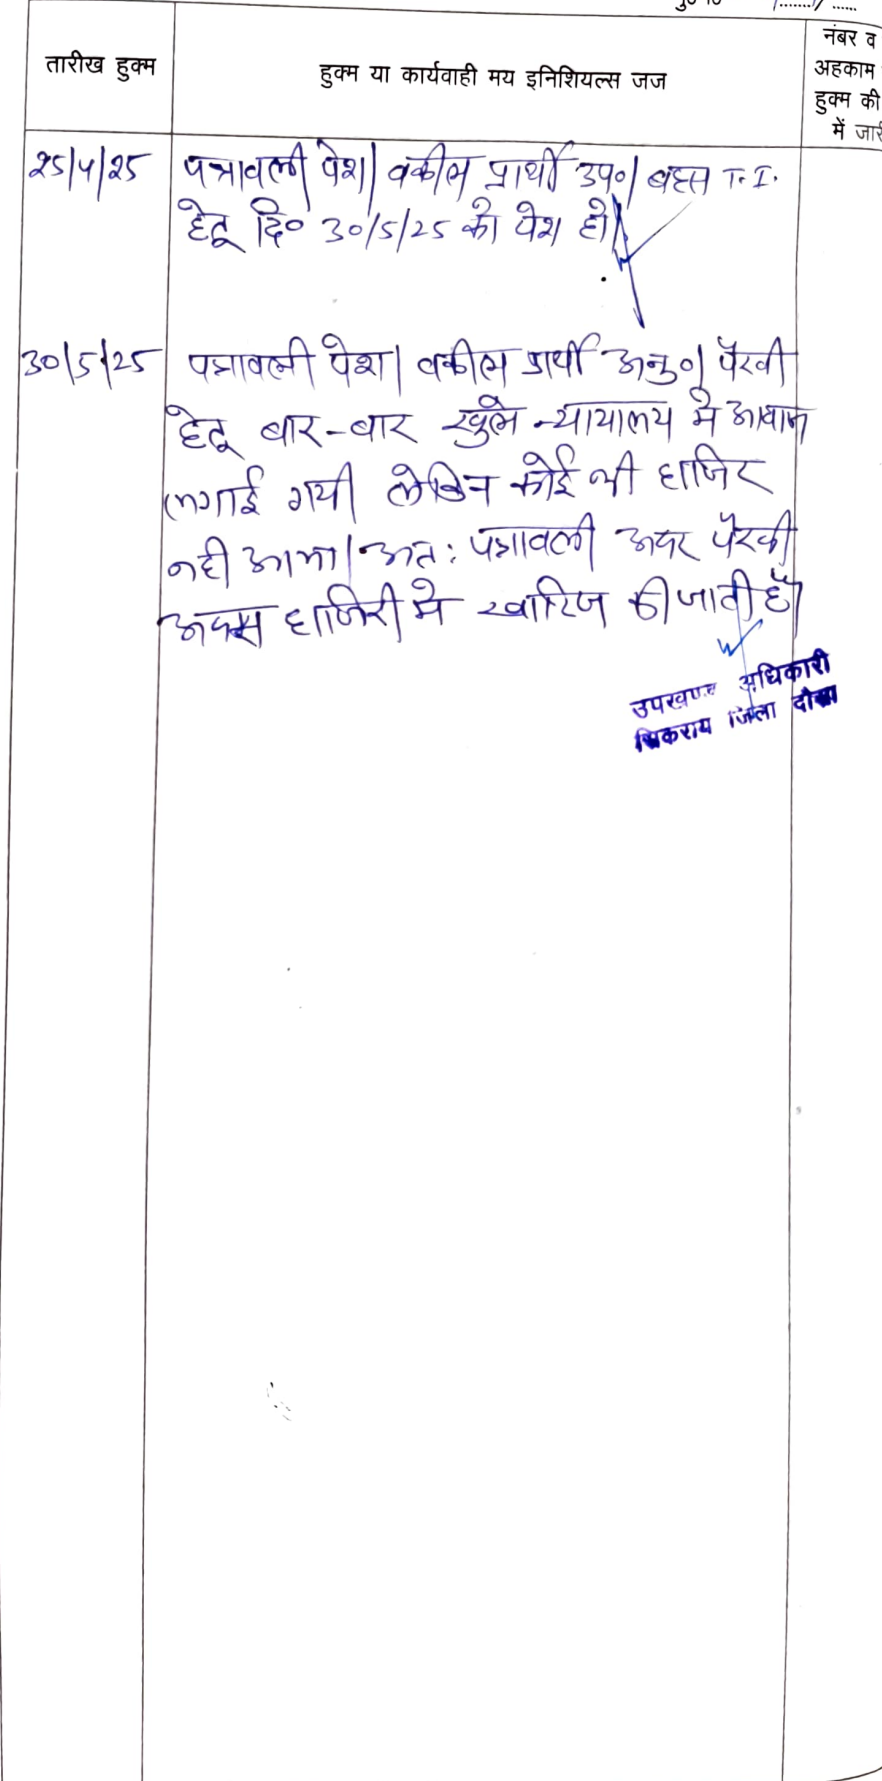 तारीख हुक्म
हुक्म या कार्यवाही मय इनिशियल्स जज
नंबर व
अहकाम
हुक्म की
में जारी
25/4/25 पत्रावली पेश। वकील प्रार्थी उप०। बहस T.I.
हेतू दि० 30/5/25 को पेश हो।
30/5/25 पत्रावली पेश। वकील प्रार्थी अनु०। पैरवी
हेतू बार-बार खुले न्यायालय मे आवाज
लगाई गयी लेकिन कोई भी हाजिर
नही आया। अत: पत्रावली अदर पैरवी
अदम हाजिरी मे खारिज की जाती है।
उपखण्ड अधिकारी
सिकराय जिला दौसा